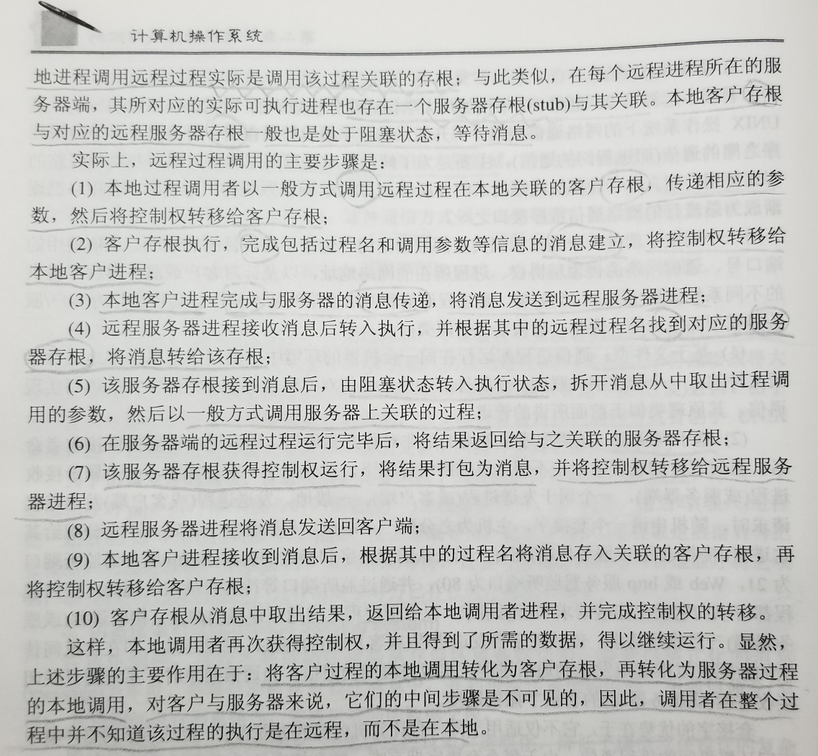 计算机操作系统
地进程调用远程过程实际是调用该过程关联的存根；与此类似，在每个远程进程所在的服
务器端，其所对应的实际可执行进程也存在一个服务器存根(stub)与其关联。本地客户存根
与对应的远程服务器存根一般也是处于阻塞状态，等待消息。
实际上，远程过程调用的主要步骤是：
(1) 本地过程调用者以一般方式调用远程过程在本地关联的客户存根，传递相应的参
数，然后将控制权转移给客户存根；
(2) 客户存根执行，完成包括过程名和调用参数等信息的消息建立，将控制权转移给
本地客户进程；
(3) 本地客户进程完成与服务器的消息传递，将消息发送到远程服务器进程；
(4) 远程服务器进程接收消息后转入执行，并根据其中的远程过程名找到对应的服务
器存根，将消息转给该存根；
(5) 该服务器存根接到消息后，由阻塞状态转入执行状态，拆开消息从中取出过程调
用的参数，然后以一般方式调用服务器上关联的过程；
(6) 在服务器端的远程过程运行完毕后，将结果返回给与之关联的服务器存根；
(7) 该服务器存根获得控制权运行，将结果打包为消息，并将控制权转移给远程服务
器进程；
(8) 远程服务器进程将消息发送回客户端；
(9) 本地客户进程接收到消息后，根据其中的过程名将消息存入关联的客户存根，再
将控制权转移给客户存根；
(10) 客户存根从消息中取出结果，返回给本地调用者进程，并完成控制权的转移。
这样，本地调用者再次获得控制权，并且得到了所需的数据，得以继续运行。显然，
上述步骤的主要作用在于：将客户过程的本地调用转化为客户存根，再转化为服务器过程
的本地调用，对客户与服务器来说，它们的中间步骤是不可见的，因此，调用者在整个过
程中并不知道该过程的执行是在远程，而不是在本地。